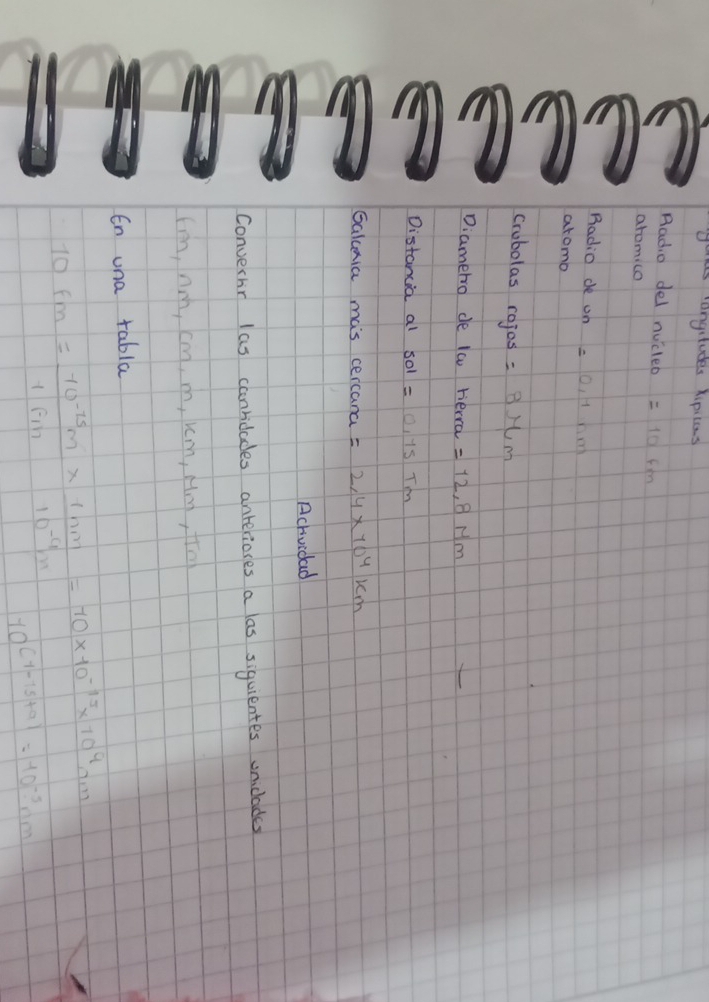 longitudes típicas
Radio del núcleo = 10 fm
atomico
Radio de un = 0,1 nm
atomo
Crobolas rojas = 8 Mm
Diametro de la tierra = 12,8 Mm
Distancia al sol = 0,15 Tm
Galaxia más cercana = 2,4 × 10⁹ Km
Actividad
Convertir las cantidades anteriores a las siguientes unidades
fm, nm, cm, m, Km, Mm, Tm
En una tabla
10 fm = 10⁻¹⁵ m × 1nm = 10 × 10⁻¹⁵ × 10⁹ nm
1 fm 10⁻⁹ m
10(1-15+9) = 10⁻⁵ nm